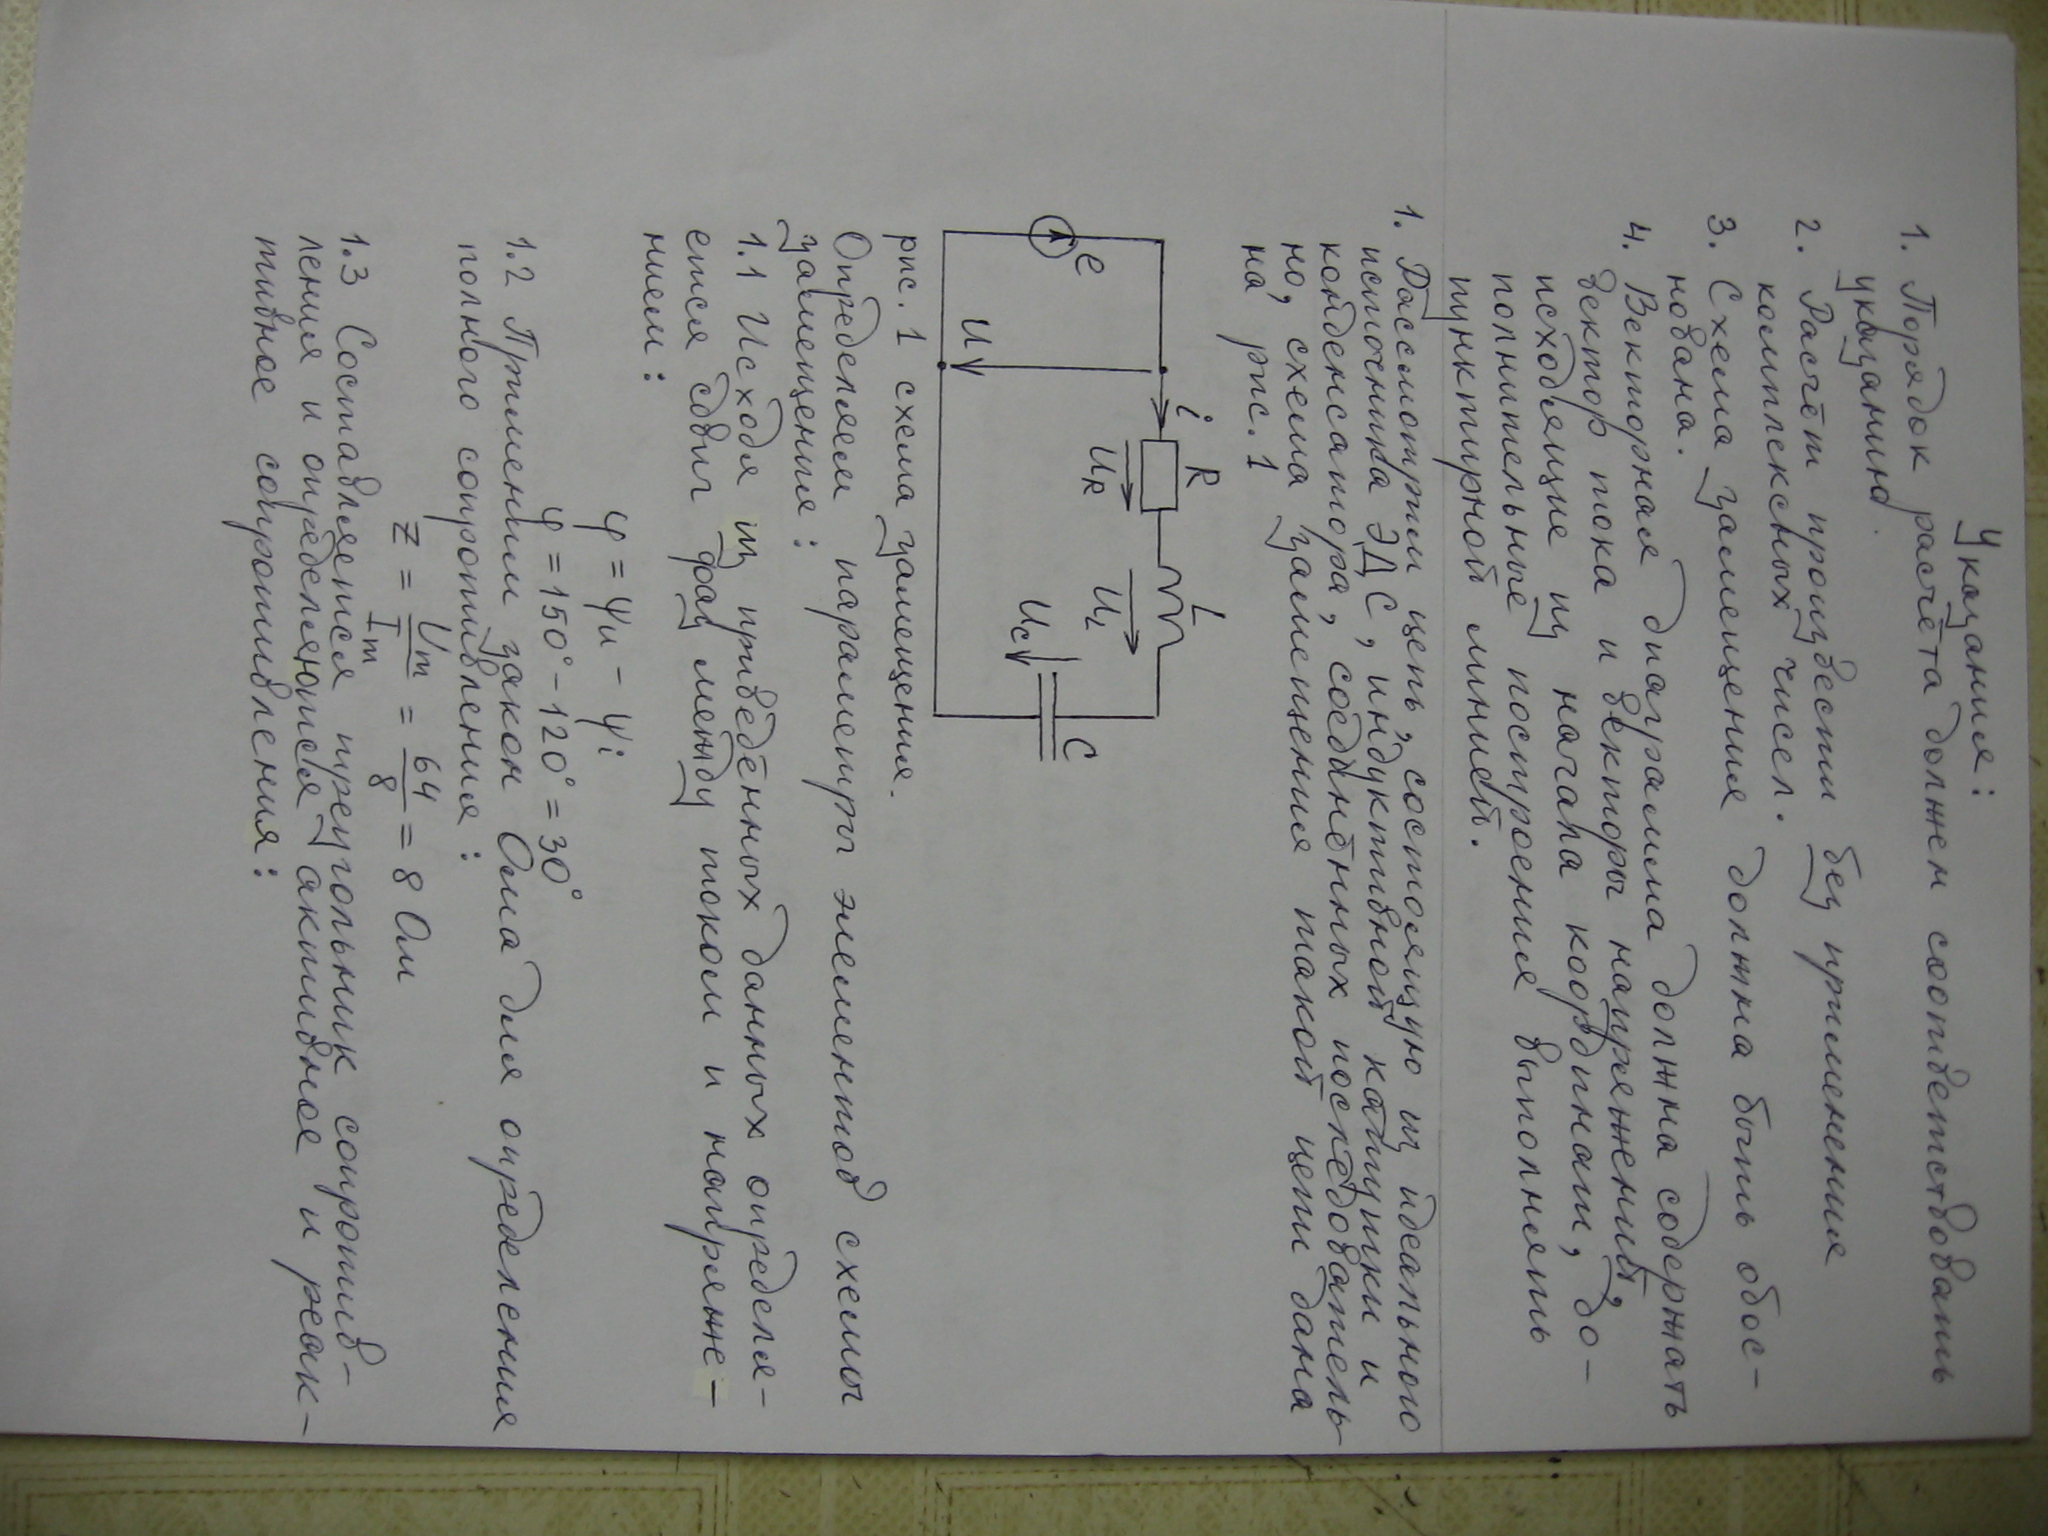 Указания:
1. Порядок расчёта должен соответствовать
указанию.
2. Расчёт произвести без применения
комплексных чисел.
3. Схема замещения должна быть обос-
нована.
4. Векторная диаграмма должна содержать
вектор тока и векторы напряжений,
исходящие из начала координат, до-
полнительные построения выполнять
пунктирной линией.
1. Рассмотрим цепь, состоящую из идеального
источника ЭДС, индуктивной катушки и
конденсатора, соединённых последователь-
но, схема замещения такой цепи дана
на рис. 1
i R L
e UR UL
U UC C
рис. 1 схема замещения.
Определяем параметры элементов схемы
замещения:
1.1 Исходя из приведённых данных определя-
ется сдвиг фаз между током и напряже-
нием:
φ = ψu - ψi
φ = 150° - 120° = 30°
1.2 Применим закон Ома для определения
полного сопротивления:
z = Um/Im = 64/8 = 8 Ом
1.3 Составляется треугольник сопротив-
ления и определяются активное и реак-
тивное сопротивления: